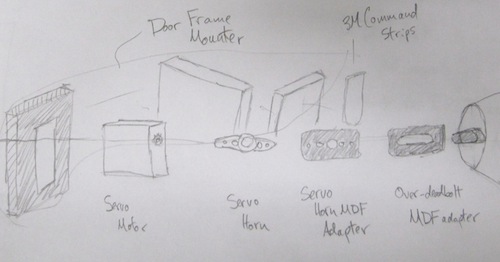 Door Frame
Mounter
3M Command
Strips
Servo
Motor
Servo
Horn
Servo
Horn MDF
Adapter
Over-deadbolt
MDF adapter